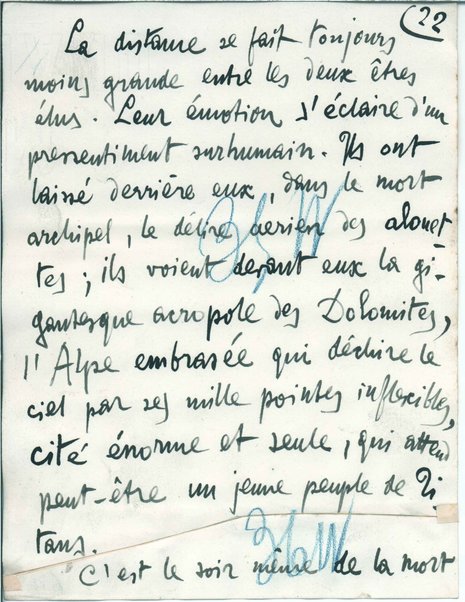 22
La distance se fait toujours
moins grande entre les deux êtres
élus. Leur émotion s'éclaire d'un
pressentiment surhumain. Ils ont
laissé derrière eux, dans le mort
archipel, le délire aérien des alouet-
tes ; ils voient devant eux la gi-
gantesque acropole des Dolomites,
l'Alpe embrasée qui déchire le
ciel par ses mille pointes inflexibles,
cité énorme et seule, qui attend
peut-être un jeune peuple de Ti
tans.
C'est le soir même de la mort